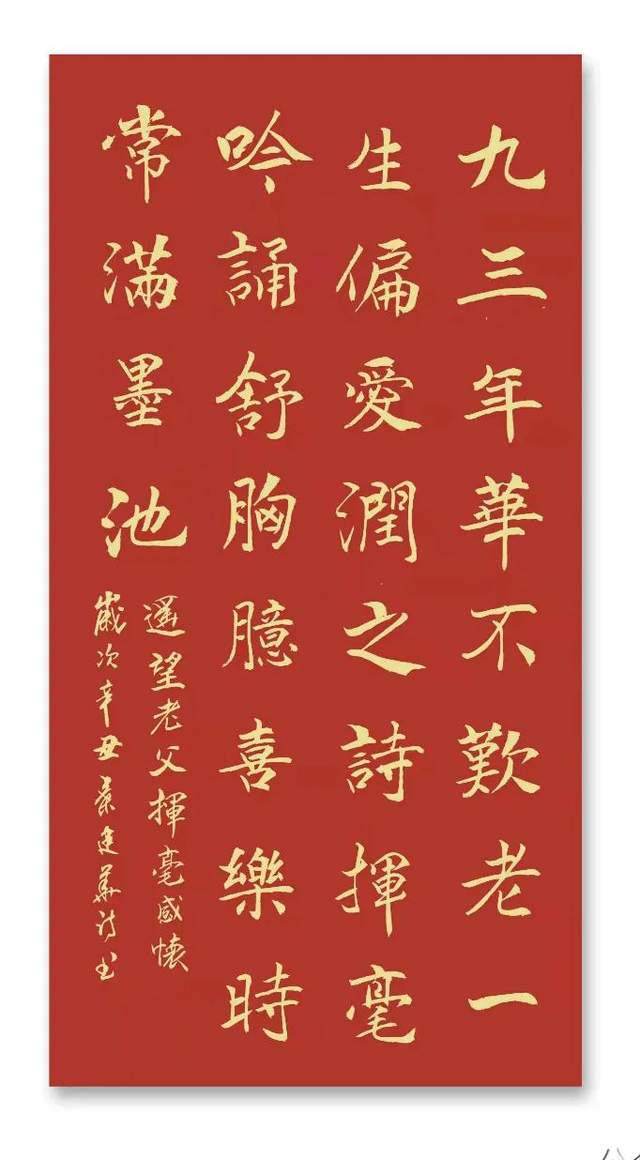 九三年華不歎老一
生偏愛潤之詩揮毫
吟誦舒胸臆喜樂時
常滿墨池
遥望老父揮毫感懷
歲次辛丑景建華詩書